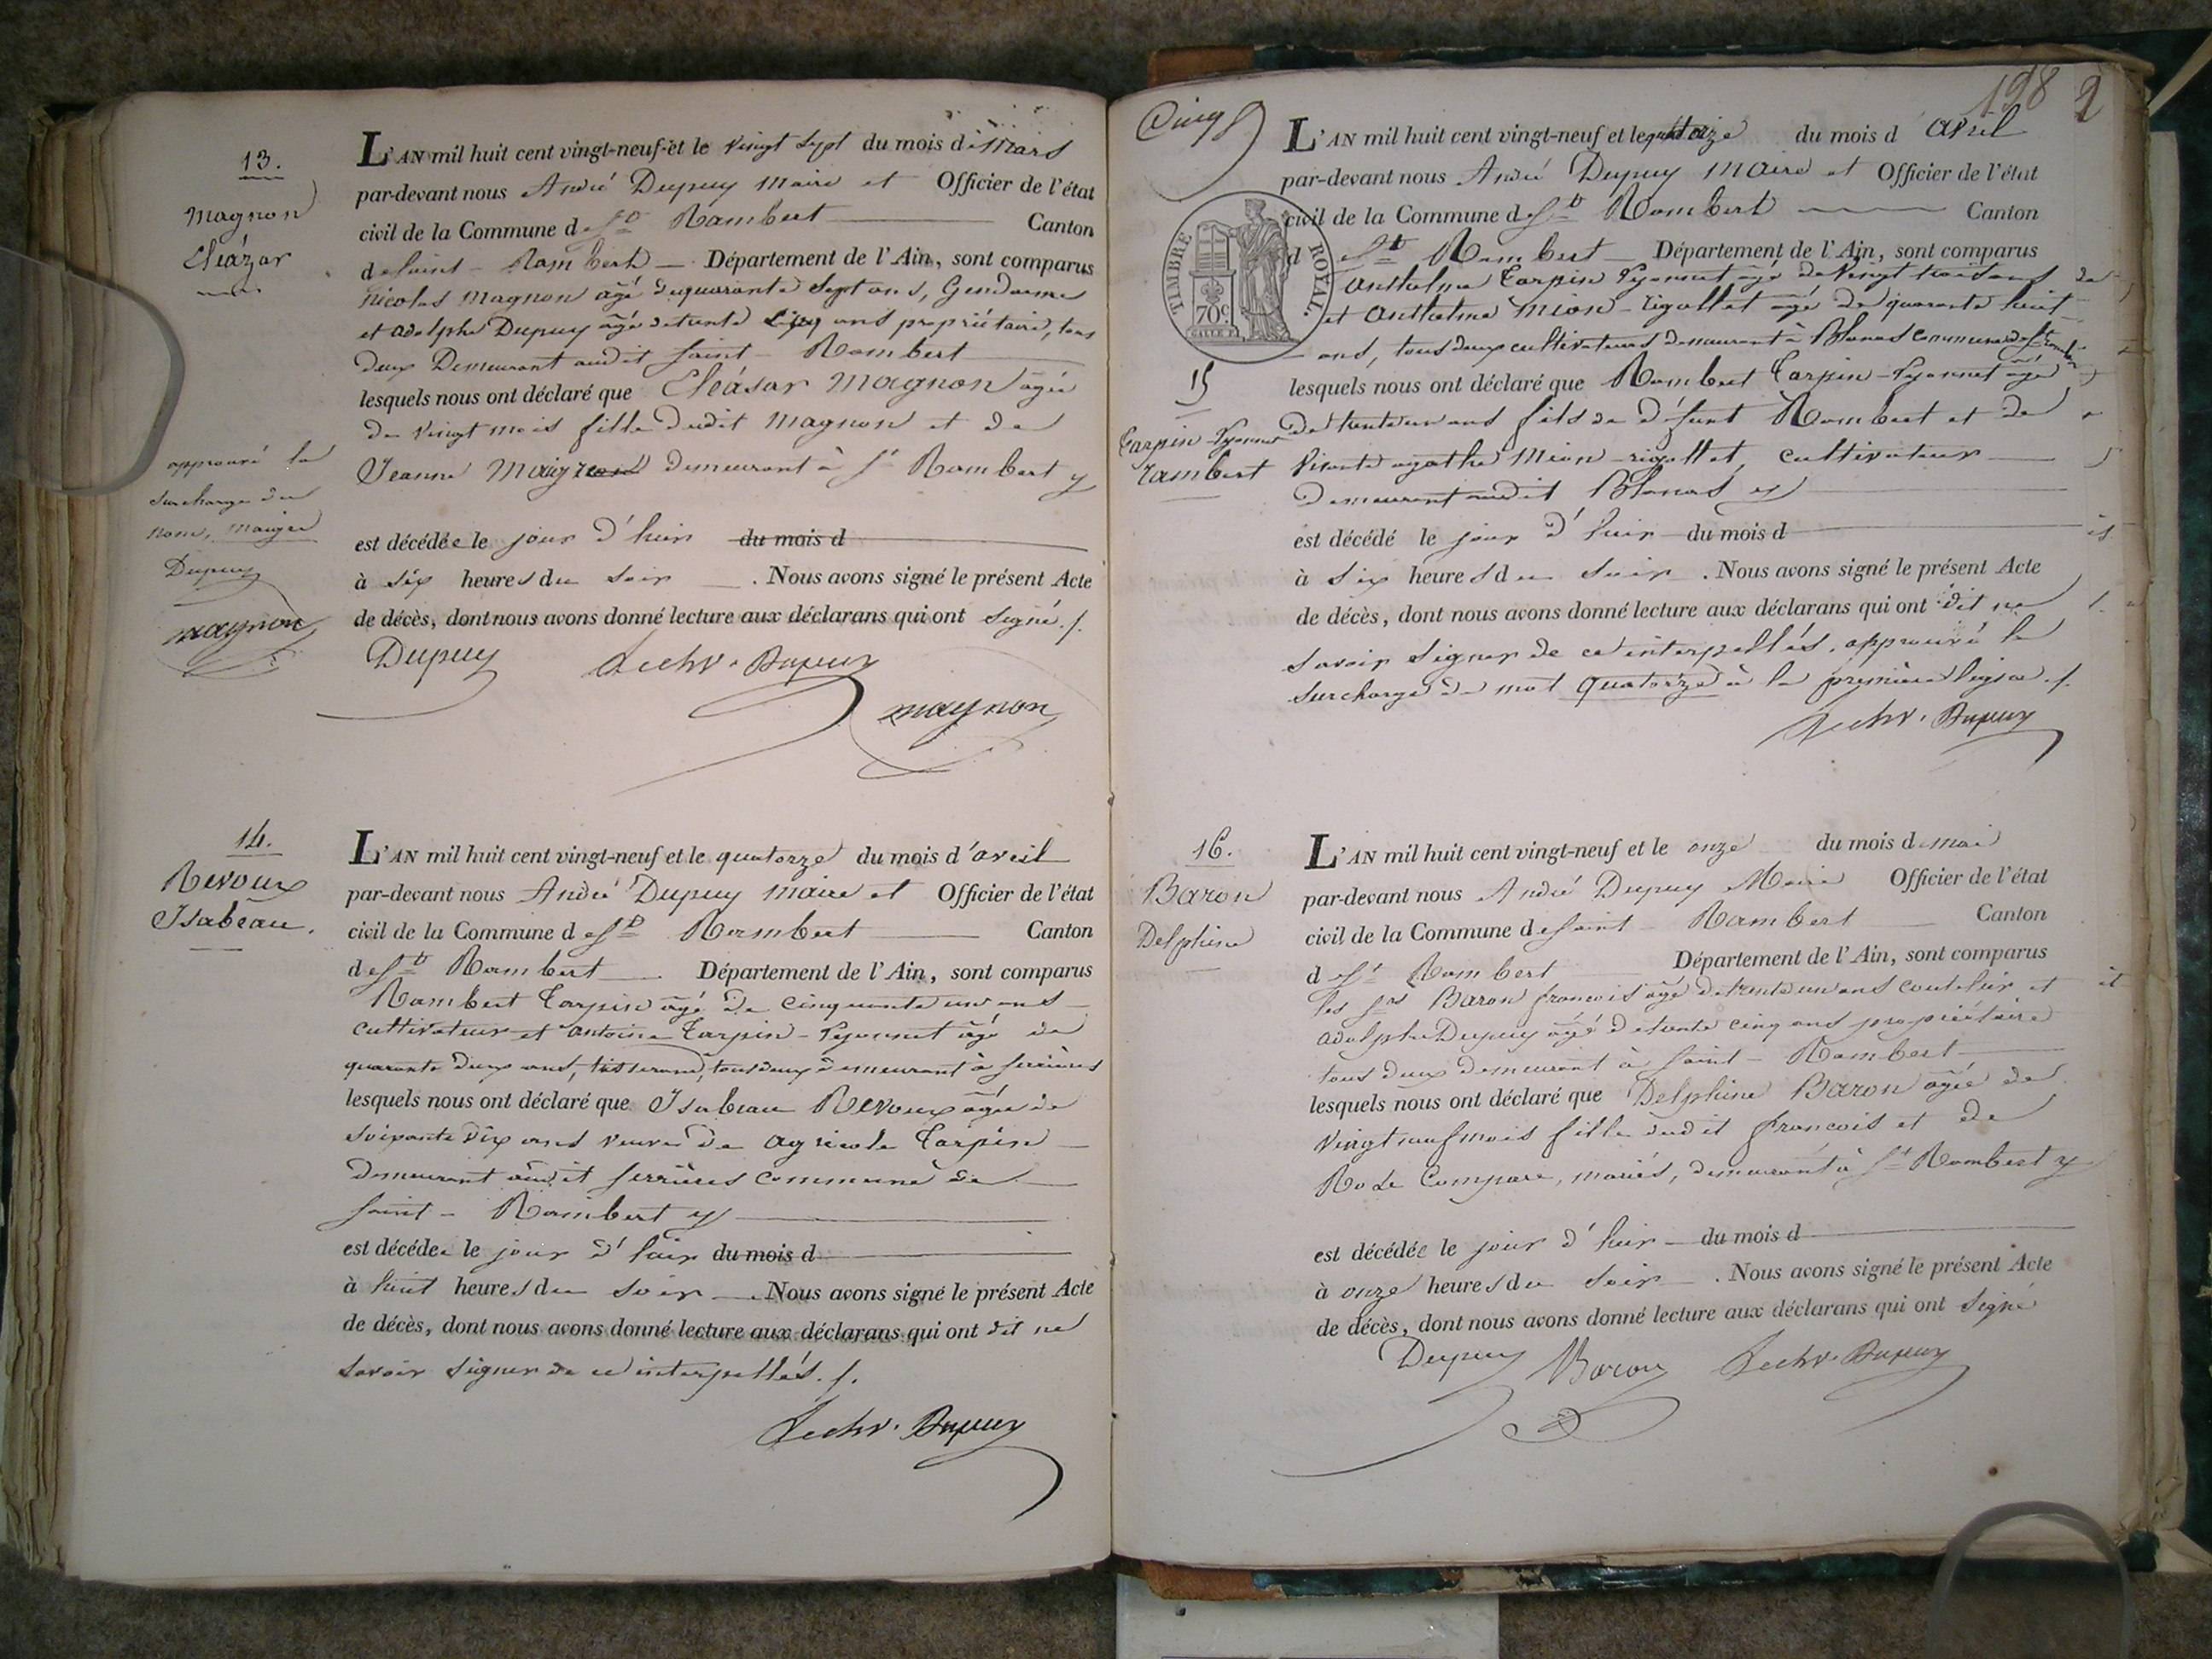 13.
Magnon
Eleázar
approuvé la
surcharge du
nom, maigre
Dupuy
magnon
L'AN mil huit cent vingt-neuf et le vingt sept du mois de Mars
par-devant nous André Dupuy Maire et Officier de l'état
civil de la Commune de St Rambert Canton
de Saint-Rambert Département de l'Ain, sont comparus
Nicolas Magnon âgé de quarante sept ans, Gendarme
et adolphe Dupuy âgé de trente cinq ans propriétaire, tous
deux Demeurant audit Saint-Rambert
lesquels nous ont déclaré que Eleásar Magnon âgée
de vingt mois fille dudit Magnon et de
Jeanne Maigre demeurant à St Rambert y
est décédée le jour d'hier du mois d
à six heures du soir. Nous avons signé le présent Acte
de décès, dont nous avons donné lecture aux déclarans qui ont signé ./.
Dupuy Dupuy
magnon
14.
Revoux
Isabeau.
L'AN mil huit cent vingt-neuf et le quatorze du mois d'avril
par-devant nous André Dupuy Maire et Officier de l'état
civil de la Commune de St Rambert Canton
de St Rambert Département de l'Ain, sont comparus
Rambert Tarpin âgé de cinquante un ans
cultivateur et antoine Tarpin-Pyonnet âgé de
quarante deux ans, tisserand, tous deux demeurant à serrières
lesquels nous ont déclaré que Isabeau Revoux âgée de
soixante dix ans veuve de agricole Tarpin
demeurant audit serrières commune de
Saint-Rambert y
est décédée le jour d'hier du mois d
à huit heures du soir. Nous avons signé le présent Acte
de décès, dont nous avons donné lecture aux déclarans qui ont dit ne
savoir signer de ce interpellés ./.
Dupuy
Cinq
198 2
TIMBRE ROYAL.
70c
L'AN mil huit cent vingt-neuf et le quatorze du mois d avril
par-devant nous André Dupuy Maire et Officier de l'état
civil de la Commune de St Rambert Canton
d St Rambert Département de l'Ain, sont comparus
anthelme Tarpin Pyonnet âgé de vingt trois ans
et anthelme Mion-rigollet âgé de quarante huit
ans, tous deux cultivateurs demeurant à Blanas commune de St Rambert
15
Tarpin-Pyonnet
rambert
lesquels nous ont déclaré que Rambert Tarpin-Pyonnet âgé
de trente un ans fils de défunt Rambert et de
vivante agathe Mion-rigollet, cultivateur
demeurant audit Blanas y
est décédé le jour d'hier du mois d
à six heures du soir. Nous avons signé le présent Acte
de décès, dont nous avons donné lecture aux déclarans qui ont dit ne
savoir signer de ce interpellés. approuvé la
surcharge du mot quatorze à la première ligne ./.
Dupuy
16.
Baron
Delphine
L'AN mil huit cent vingt-neuf et le onze du mois de mai
par-devant nous André Dupuy Maire Officier de l'état
civil de la Commune de Saint-Rambert Canton
d St Rambert Département de l'Ain, sont comparus
les srs Baron francois âgé de trente un ans coutelier et
adolphe Dupuy âgé de trente cinq ans propriétaire
tous deux demeurant à Saint-Rambert
lesquels nous ont déclaré que Delphine Baron âgée de
vingt neuf mois fille dudit francois et de
Rose Compare, mariés, demeurant à St Rambert y
est décédée le jour d'hier du mois d
à onze heures du soir. Nous avons signé le présent Acte
de décès, dont nous avons donné lecture aux déclarans qui ont signé
Dupuy Baron Dupuy